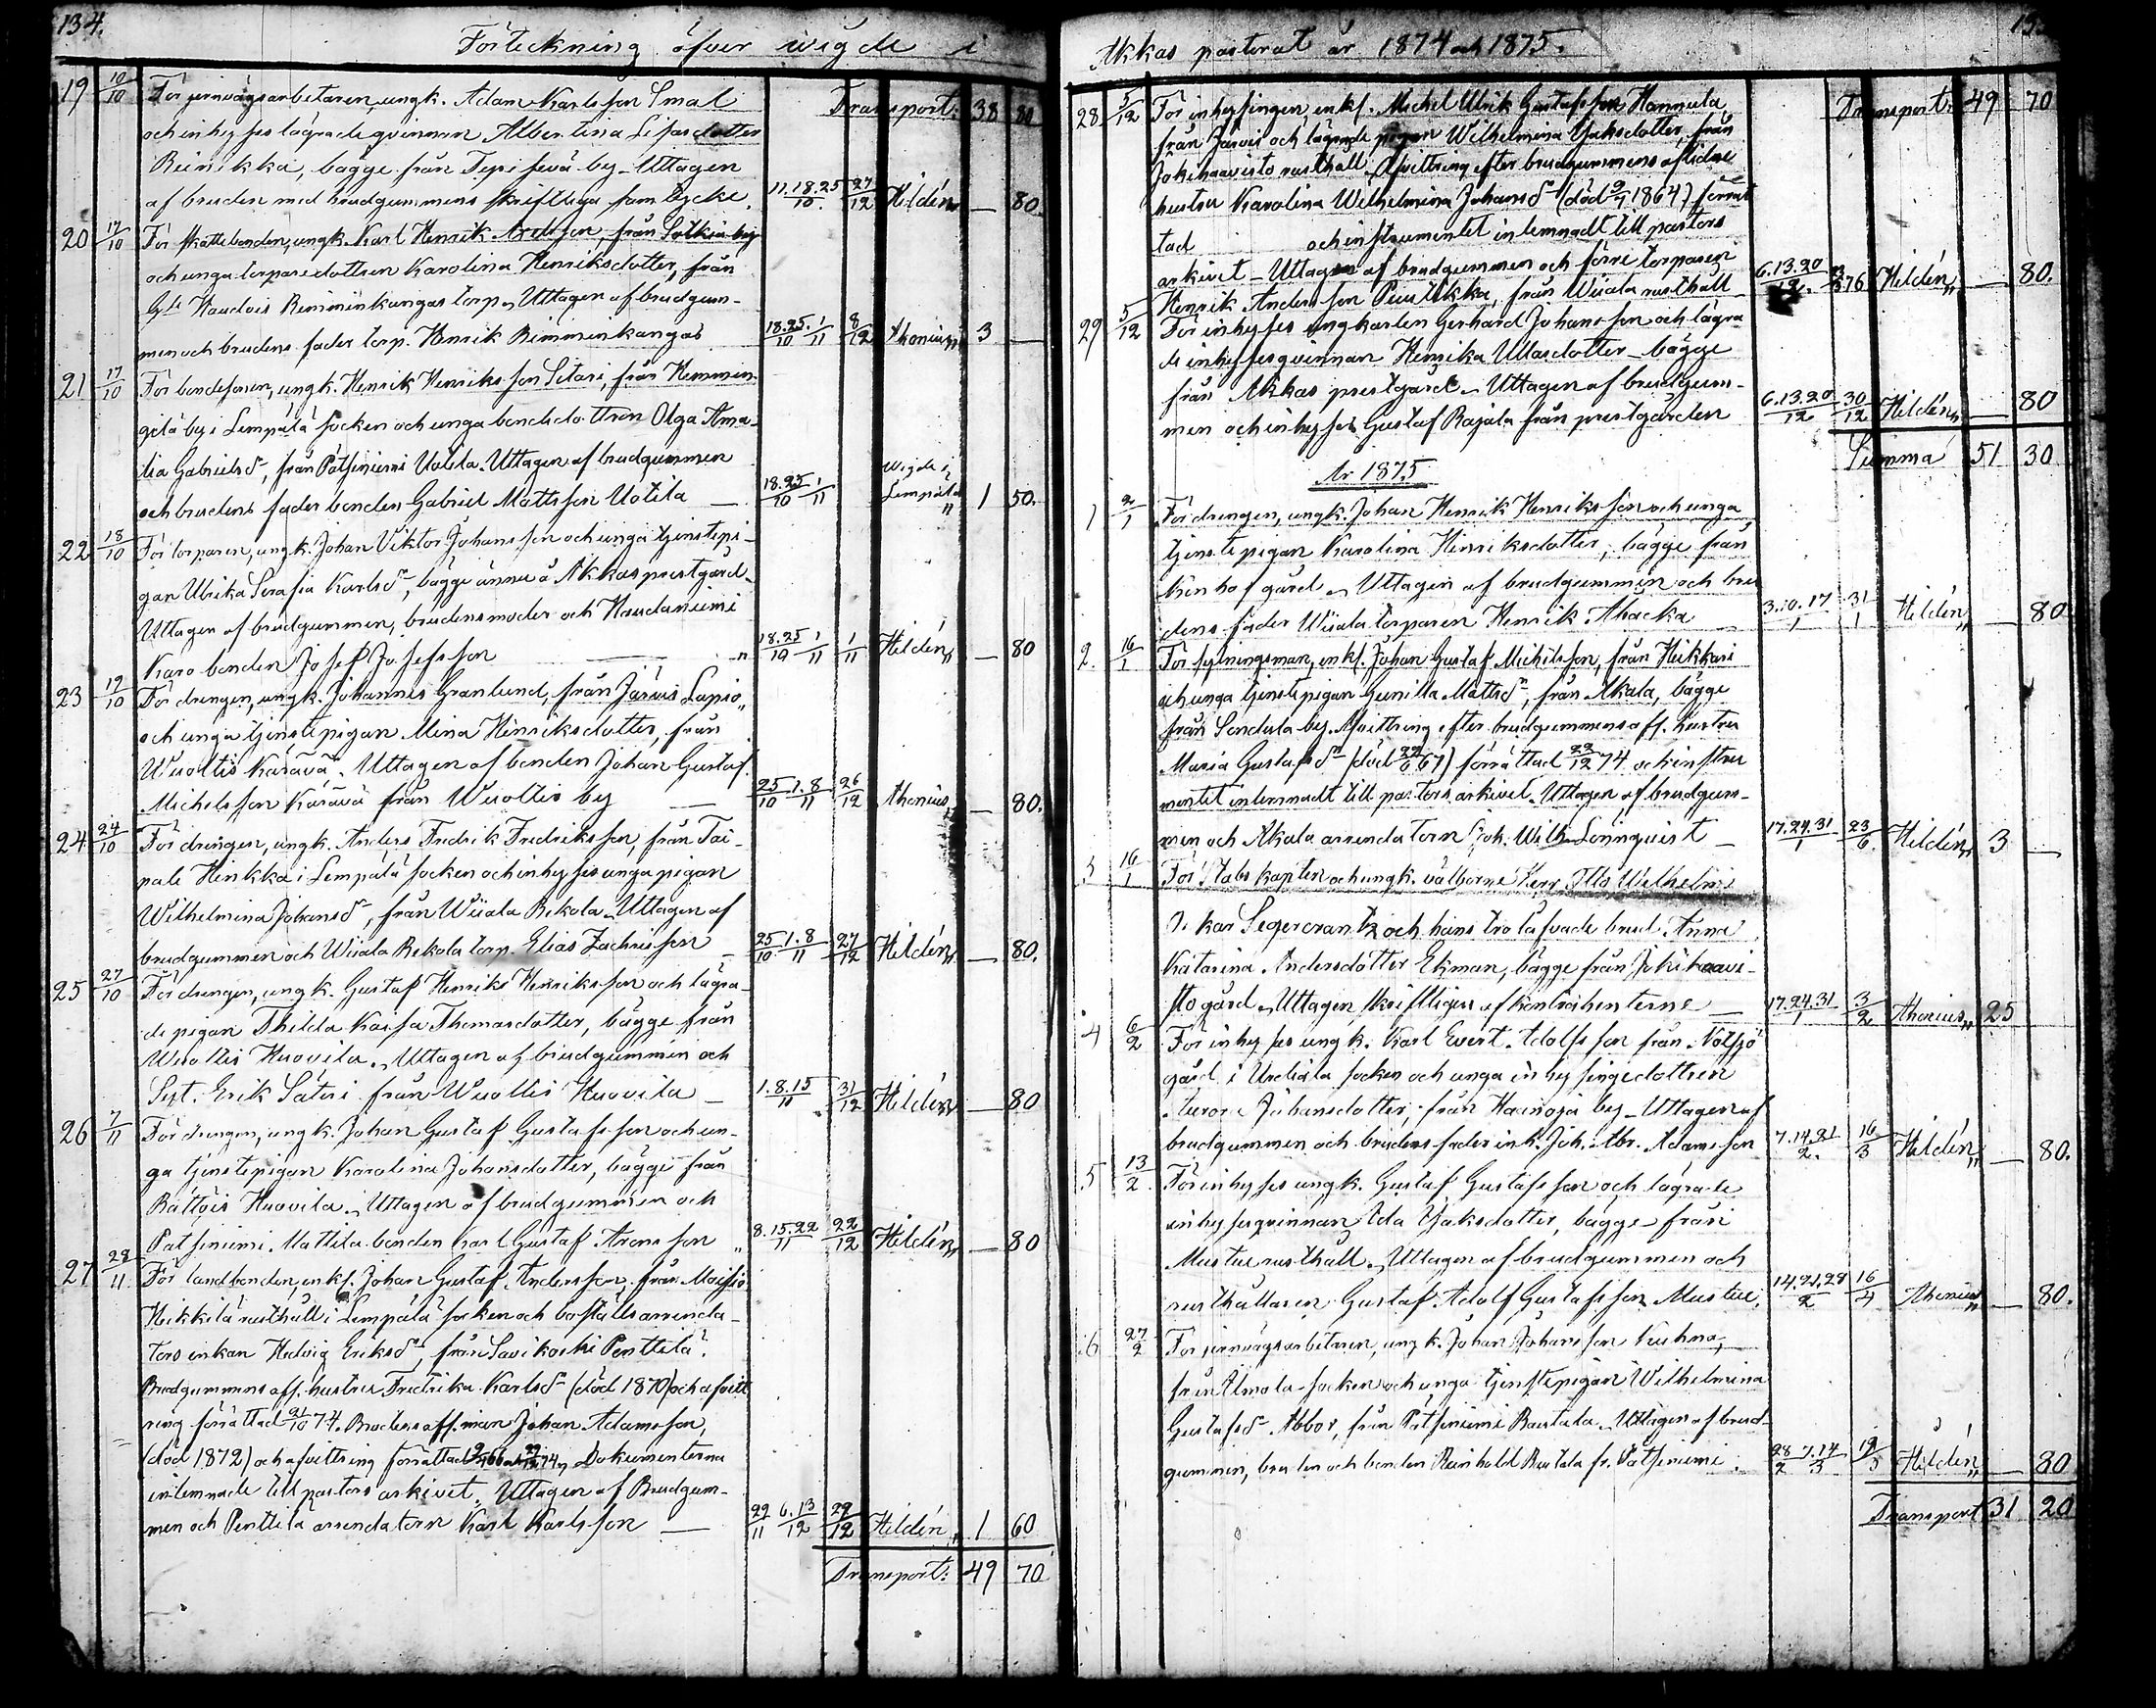 134.
Förteckning öfver wigde i
19 10/10 För jernvägsarbetaren, ungk. Adam Karlsson Smal Transport: 38 80
och inhyses lägrade qvinnan Albertina Lisasdotter
Reinikka, bägge från by - Uttagen
af bruden med brudgummens skriftliga samtycke. 11.18.25/10. 27/12 Hildén „ — 80.
20 17/10 För skattebonden, ungk. Karl Henrik från by
och unga torparedottren Karolina Henriksdotter, från
Rimminkangas torp „ Uttagen af brudgum-
men och brudens fader torp. Henrik Rimminkangas 18.25/10 1/11 8/12 Ahonius „ 3 —
21 17/10 För bondesonen, ungk. Henrik Henriksson Sitari, från Hemmin-
gilä by i Lempälä socken och unga bondedottren Olga Ama-
lia Gabrielsdr, från Patsiniemi Uotila. Uttagen af brudgummen Wigde i
och brudens fader bonden Gabriel Mattsson Uotila — 18.25/10 1/11 Lempälä „ 1 50.
22 18/10 För torparen, ungk. Johan Viktor Johansson och unga tjenstepi-
gan Ulrika Serafia Karlsdr, bägge ännu å Akkas prestgård.
Uttagen af brudgummen, brudens moder och Haudaniemi
Karo bonden Josef Josefsson — „ 18.25/10 1/11 1/11 Hildén „ — 80
23 19/10 För drengen, ungk. Johannes Granlund, från Järvis Lapio „
och unga tjenstepigan Mina Henriksdotter, från
Wuoltis Kärävä. Uttagen af bonden Johan Gustaf
Michelsson Kärävä från Wuoltis by — 25/10 1.8/11 26/12 Ahonius „ — 80.
24 24/10 För drengen, ungk. Anders Fredrik Fredriksson, från Tai-
pale Heikka i Lempälä socken och inhyses unga pigan
Wilhelmina Johansdr, från Wiiala Rekola. Uttagen af
brudgummen och Wiiala Rekola torp. Elias Zachrisson — 25/10 1.8/11 27/12 Hildén „ — 80.
25 27/10 För drengen, ungk. Gustaf Henriks Henriksson och lägra-
de pigan Thilda Kaisa Thomasdotter, bägge från
Wuoltis Huovila. „ Uttagen af brudgummen och
Syt. Erik Säteri från Wuoltis Huovila — 1.8.15/11 31/12 Hildén „ — 80
26 7/11 För drengen, ungk. Johan Gustaf Gustafsson och un-
ga tjenstepigan Karolina Johansdotter, bägge från
Rättöis Huovila. Uttagen af brudgummen och
Patsiniemi Mattila bonden Karl Gustaf Aronsson „ 8.15.22/11 22/12 Hildén „ — 80
27 28/11. För landbonden, enkl. Johan Gustaf Andersson, från Moisio
Heikkilä rusthåll i Lempälä socken och boställsarrenda-
tors enkan Hedvig Eriksdr, från Savikoski Penttilä.
Brudgummens afl. hustru Fredrika Karlsdr (död 1870) och afvitt
ring förrättad 21/10 74. Brudens afl. man Johan Adamsson,
(död 1872) och afvittring förrättad Dokumenterna
inlemnade till pastors arkivet „ Uttagen af Brudgum-
men och Penttilä arrendatorn Karl Karlsson — 22/11 6.13/12 22/12 Hildén „ 1 60
Transport: 49 70
Akkas pastorat år 1874 och 1875.
28 5/12 För inhysingen, enkl. Michel Ulrik Gustafsson Hannula Transport: 49 70
från Järvis och lägrade pigan Wilhelmina Jaksdotter från
Jokihaavisto rusthåll. Afvittring efter brudgummens aflidne
hustru Karolina Wilhelmina Johansdr (död 1864) förrät
tad och instrumentet inlemnadt till pastors
arkivet - Uttagen af brudgummen och förre torparen 6.13.20/12. 76 Hildén „ — 80.
Henrik Andersson Puustikka, från Wiiala rusthåll
29 5/12 För inhyses ungkarlen Gerhard Johansson och lägra
de inhyses qvinnan Henrika Ullasdotter - bägge
från Akkas prestgård. Uttagen af brudgum-
men och inhyses Gustaf Rajala från prestgården 6.13.20/12 30/12 Hildén „ — 80
Summa 51 30
År 1875
1 2/1 För drengen, ungk. Johan Henrik Henriksson och unga
tjenstepigan Karolina Henriksdotter, bägge från
gård „ Uttagen af brudgummen och bru
dens fader Wiiala torparen Henrik Ahacka 3.10.17/1 31/1 Hildén „ — 80
2. 16/1 För sytningsman, enkl. Johan Gustaf Michelsson, från Heikkari
och unga tjenstepigan Gunilla Mattsdr, från Akala, bägge
från Sondula by. Afvittring efter brudgummens afl. hustru
Maria Gustafsdr (död 22/6 67) förrättad 22/12 74 och instru
mentet inlemnadt till pastors arkivet. Uttagen af brudgum-
men och Akala arrendatorn Joh. Wilh. Lönnqvist — 17.24.31/1 23/6. Hildén „ 3 —
3 16/1 För Stabskapten och ungk. välborne Herr Otto Wilhelm
Oskar Segercrantz och hans trolofvade brud Anna
Katarina Andersdotter Ekman, bägge från Jokihaavi-
sto gård „ Uttagen skriftligen af kontrahenterne — 17.24.31/1 3/2 Ahonius „ 25
4 6/2 För inhyses ungk. Karl Evert Adolfsson från Notsjö
gård i Urdiala socken och unga inhysingedottren
Aurora Johansdotter, från by - Uttagen af
brudgummen och brudens fader inh. Joh. Abr. Adamsson 7.14.21/2. 16/3 Hildén „ — 80.
5 13/2. För inhyses ungk. Gustaf Gustafsson och lägrade
inhyses qvinnan Ida Jaksdotter, bägge från
Mustue rusthåll „ Uttagen af brudgummen och
rusthållaren Gustaf Adolf Gustafsson Mustue. 14.21.28/2 16/4 Ahonius „ — 80.
6 27/2 För jernvägsarbetaren, ungk. Johan Johansson Kuhna,
från Ilmola socken och unga tjenstepigan Wilhelmina
Gustafsdr Abbor, från Patsiniemi Rautala. Uttagen af brud-
gummen, bruden och bonden Reinhold Rautala fr. Patsiniemi. 28/2 7.14/3 19/3 Hildén „ — 80
Transport 31 20